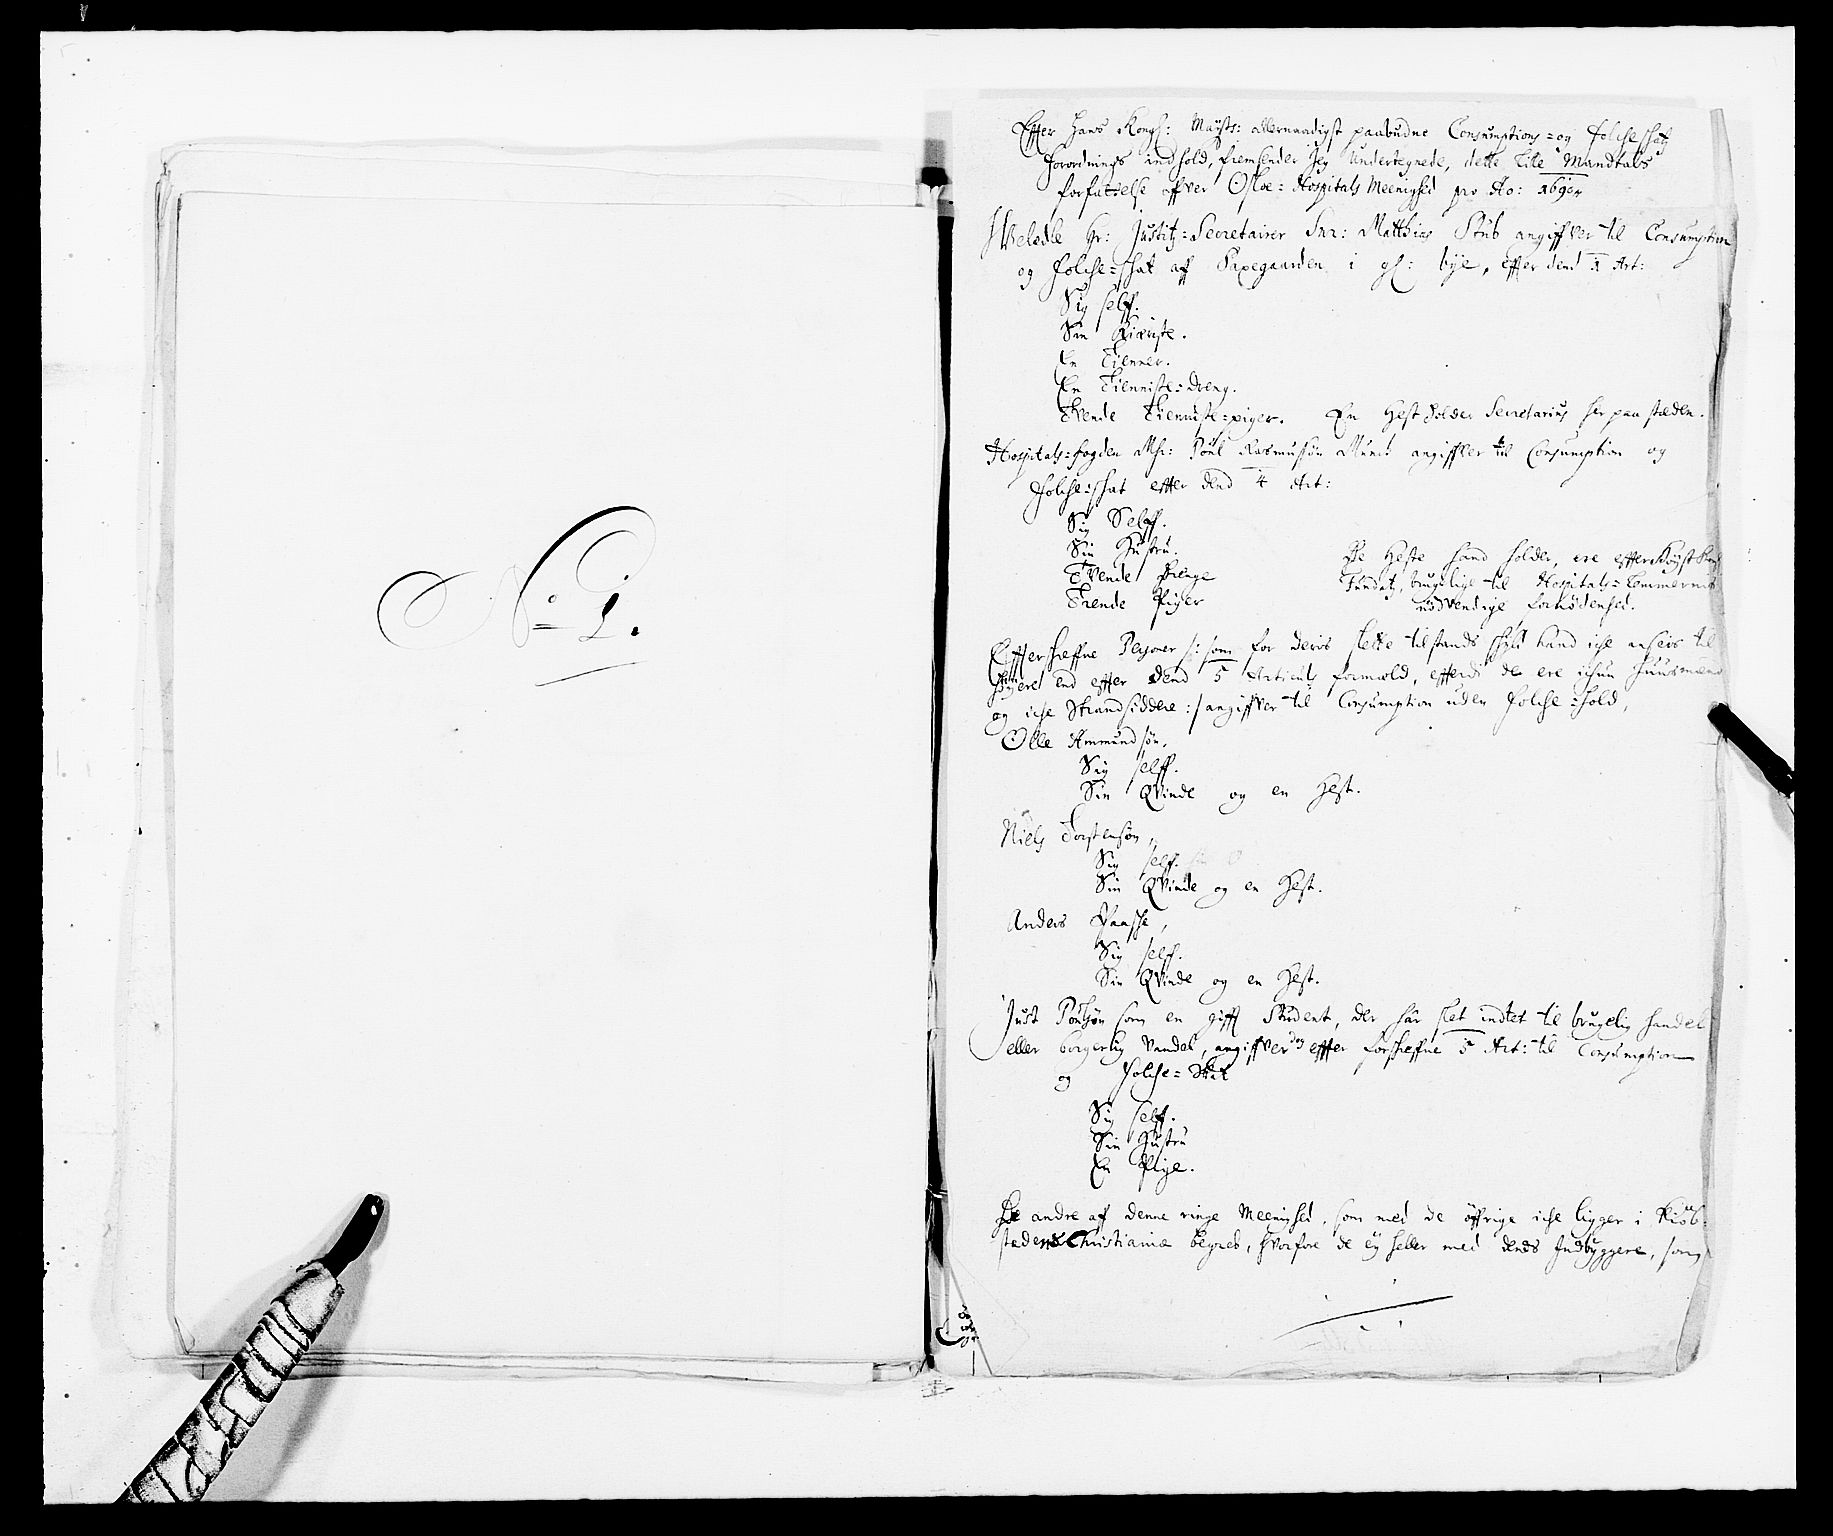 No 1.
Effter Hans Kongl: Maÿsts: allernaadigst paabudne Consumptions=og Folche Skatz
Forordnings indhold, fremsender Jeg Undertegnede, dette lille Mandtals
forfattelse offver Osloe=Hospitals Meenighed pro Ao: 1690.
Velædle Hr: Justitz=Secretairer Snr: Matthias Stub angiffver til Consumption
og Folche=Skat aff Saxegaarden i gl: bÿe, effter dend 1 Art:
Sig selff.
Sin Kiæriste.
En Tienner.
En Tienniste=dreng.
Tvende Tienniste=piger. En Hest holder Secretarius her paa stæden.
Hospitals=fogden Mr: Poul Rasmussøn Munch angiffver til Consumption og
Folche=skat effter dend 4 Art:
Sig Selff.
Sin Hustru.
Tvende Drenge
Trende Piger
De Heste hand holder, ere effter
Fundatz, brugelige til Hospitals=Lemmernis
nødvendige fornødenhed.
Effterskreffne Personer /: som for deris slette tilstands skÿld kand iche ansees til
høÿere end effter dend 5 Articuls formæld, efferdi de ere ichun Huusmænd
og iche Strandsiddere :/ angiffver til Consumption uden Folche=hold,
Olle Ammundsøn,
Sig selff.
Sin Qvinde og en Hest.
Niels Torstensøn,
Sig self.
Sin Qvinde og en Hest.
Anders Paasche,
Sig self.
Sin Qvinde og en Hest.
Just Poulsøn som en gifft Student, der har slet indtet til brugelig handel
eller borgerlig Vandel, angiffver og effter forskreffne 5 Art: til Consumption
og Folche=Skat
Sig self.
Sin Hustru
En Pige.
De andre aff denne ringe Meenighed, som med de øffrige iche ligger i Kiøb-
stædens Christiania begreb, hvorfore de eÿ heller med dends Indbÿggere, som